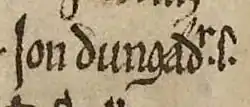 Jon dungadr. s.